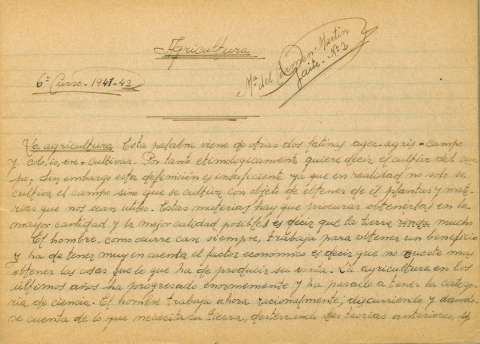 Agricultura
Mª del Carmen Martín
Gaite. Nº 2
6º Curso - 1941-42
La agricultura. Esta palabra viene de otras dos latinas ager-agris-campo
y colo, is, ere - cultivar. Por tanto etimologicamente quiere decir el cultivo del cam-
po. Sin embargo esta definición es insuficiente ya que en realidad no solo se
cultiva el campo sino que se cultiva con objeto de obtener de el plantas y mate-
rias que nos sean utiles. Estas materias hay que procurar obtenerlas en la
mayor cantidad y la mejor calidad posible, es decir que la tierra mucho
El hombre, como ocurre casi siempre, trabaja para obtener un beneficio
y ha de tener muy en cuenta el factor economico es decir que no cueste mas
obtener las cosas que lo que ha de producir su venta. La agricultura en los
ultimos años ha progresado enormemente y ha pasado a tener la catego-
ria de ciencia. El hombre trabaja ahora racionalmente, discurriendo y dando-
se cuenta de lo que necesita la tierra, desterrando las teorias anteriores, el